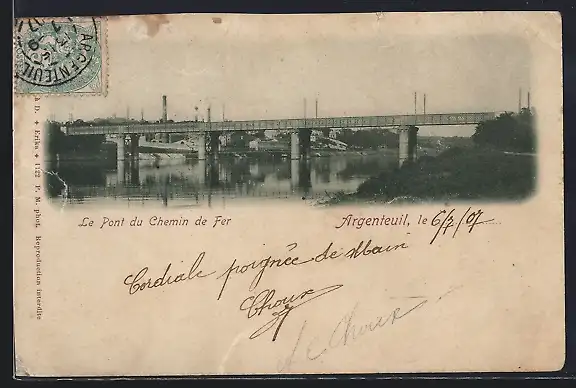 ARGENTEUIL
A D. ✦ Erika ✦ 1722 P. M phot. Reproduction interdite
Le Pont du Chemin de Fer
Argenteuil, le 6/3/07
Cordiale poignée de Main
Choux
Le Choux